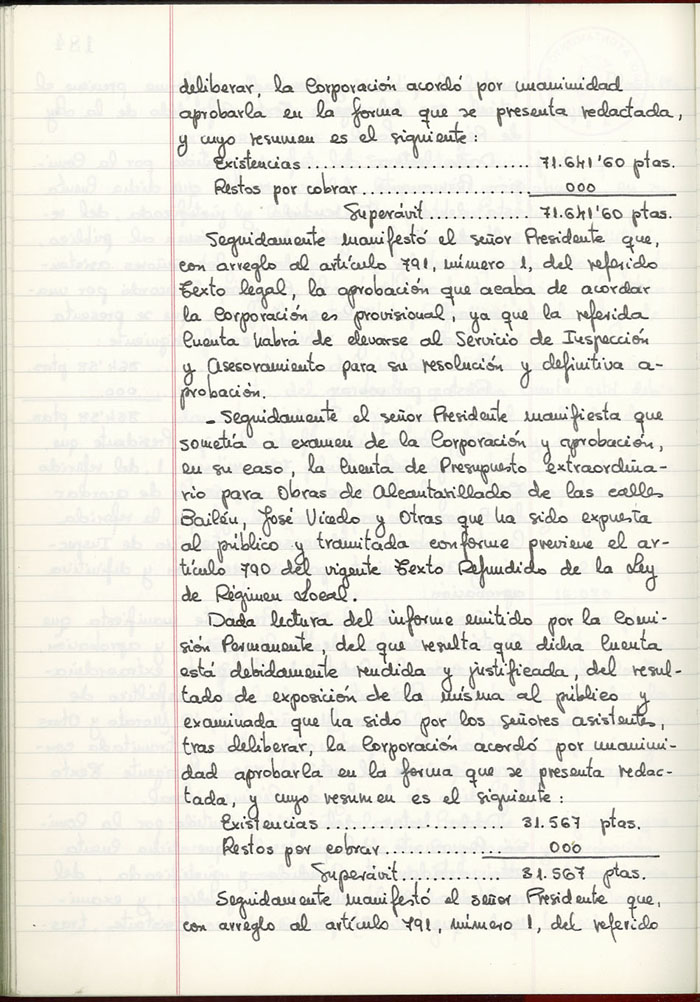 deliberar, la Corporación acordó por unanimidad
aprobarla en la forma que se presenta redactada,
y cuyo resumen es el siguiente:
Existencias ........................... 71.641'60 ptas.
Restos por cobrar .................... 000
Superávit ............. 71.641'60 ptas.
Seguidamente manifestó el señor Presidente que,
con arreglo al artículo 791, número 1, del referido
Texto legal, la aprobación que acaba de acordar
la Corporación es provisional, ya que la referida
Cuenta habrá de elevarse al Servicio de Inspección
y Asesoramiento para su resolución y definitiva a-
probación.
- Seguidamente el señor Presidente manifiesta que
sometía a examen de la Corporación y aprobación,
en su caso, la Cuenta de Presupuesto extraordina-
rio para Obras de Alcantarillado de las calles
Bailén, José Vicedo y Otras que ha sido expuesta
al público y tramitada conforme previene el ar-
tículo 790 del vigente Texto Refundido de la Ley
de Régimen Local.
Dada lectura del informe emitido por la Comi-
sión Permanente, del que resulta que dicha Cuenta
está debidamente rendida y justificada, del resul-
tado de exposición de la misma al público y
examinada que ha sido por los señores asistentes,
tras deliberar, la Corporación acordó por unanimi-
dad aprobarla en la forma que se presenta redac-
tada, y cuyo resumen es el siguiente:
Existencias ...................... 31.567 ptas.
Restos por cobrar ............... 000
Superávit ............. 31.567 ptas.
Seguidamente manifestó el señor Presidente que,
con arreglo al artículo 791, número 1, del referido